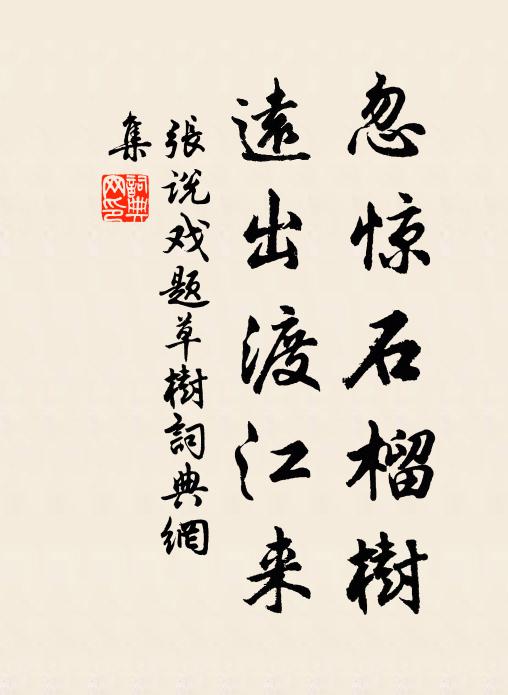 忽惊石榴樹
遠出渡江来
張说戏题草樹詞典網
集
詞典网印